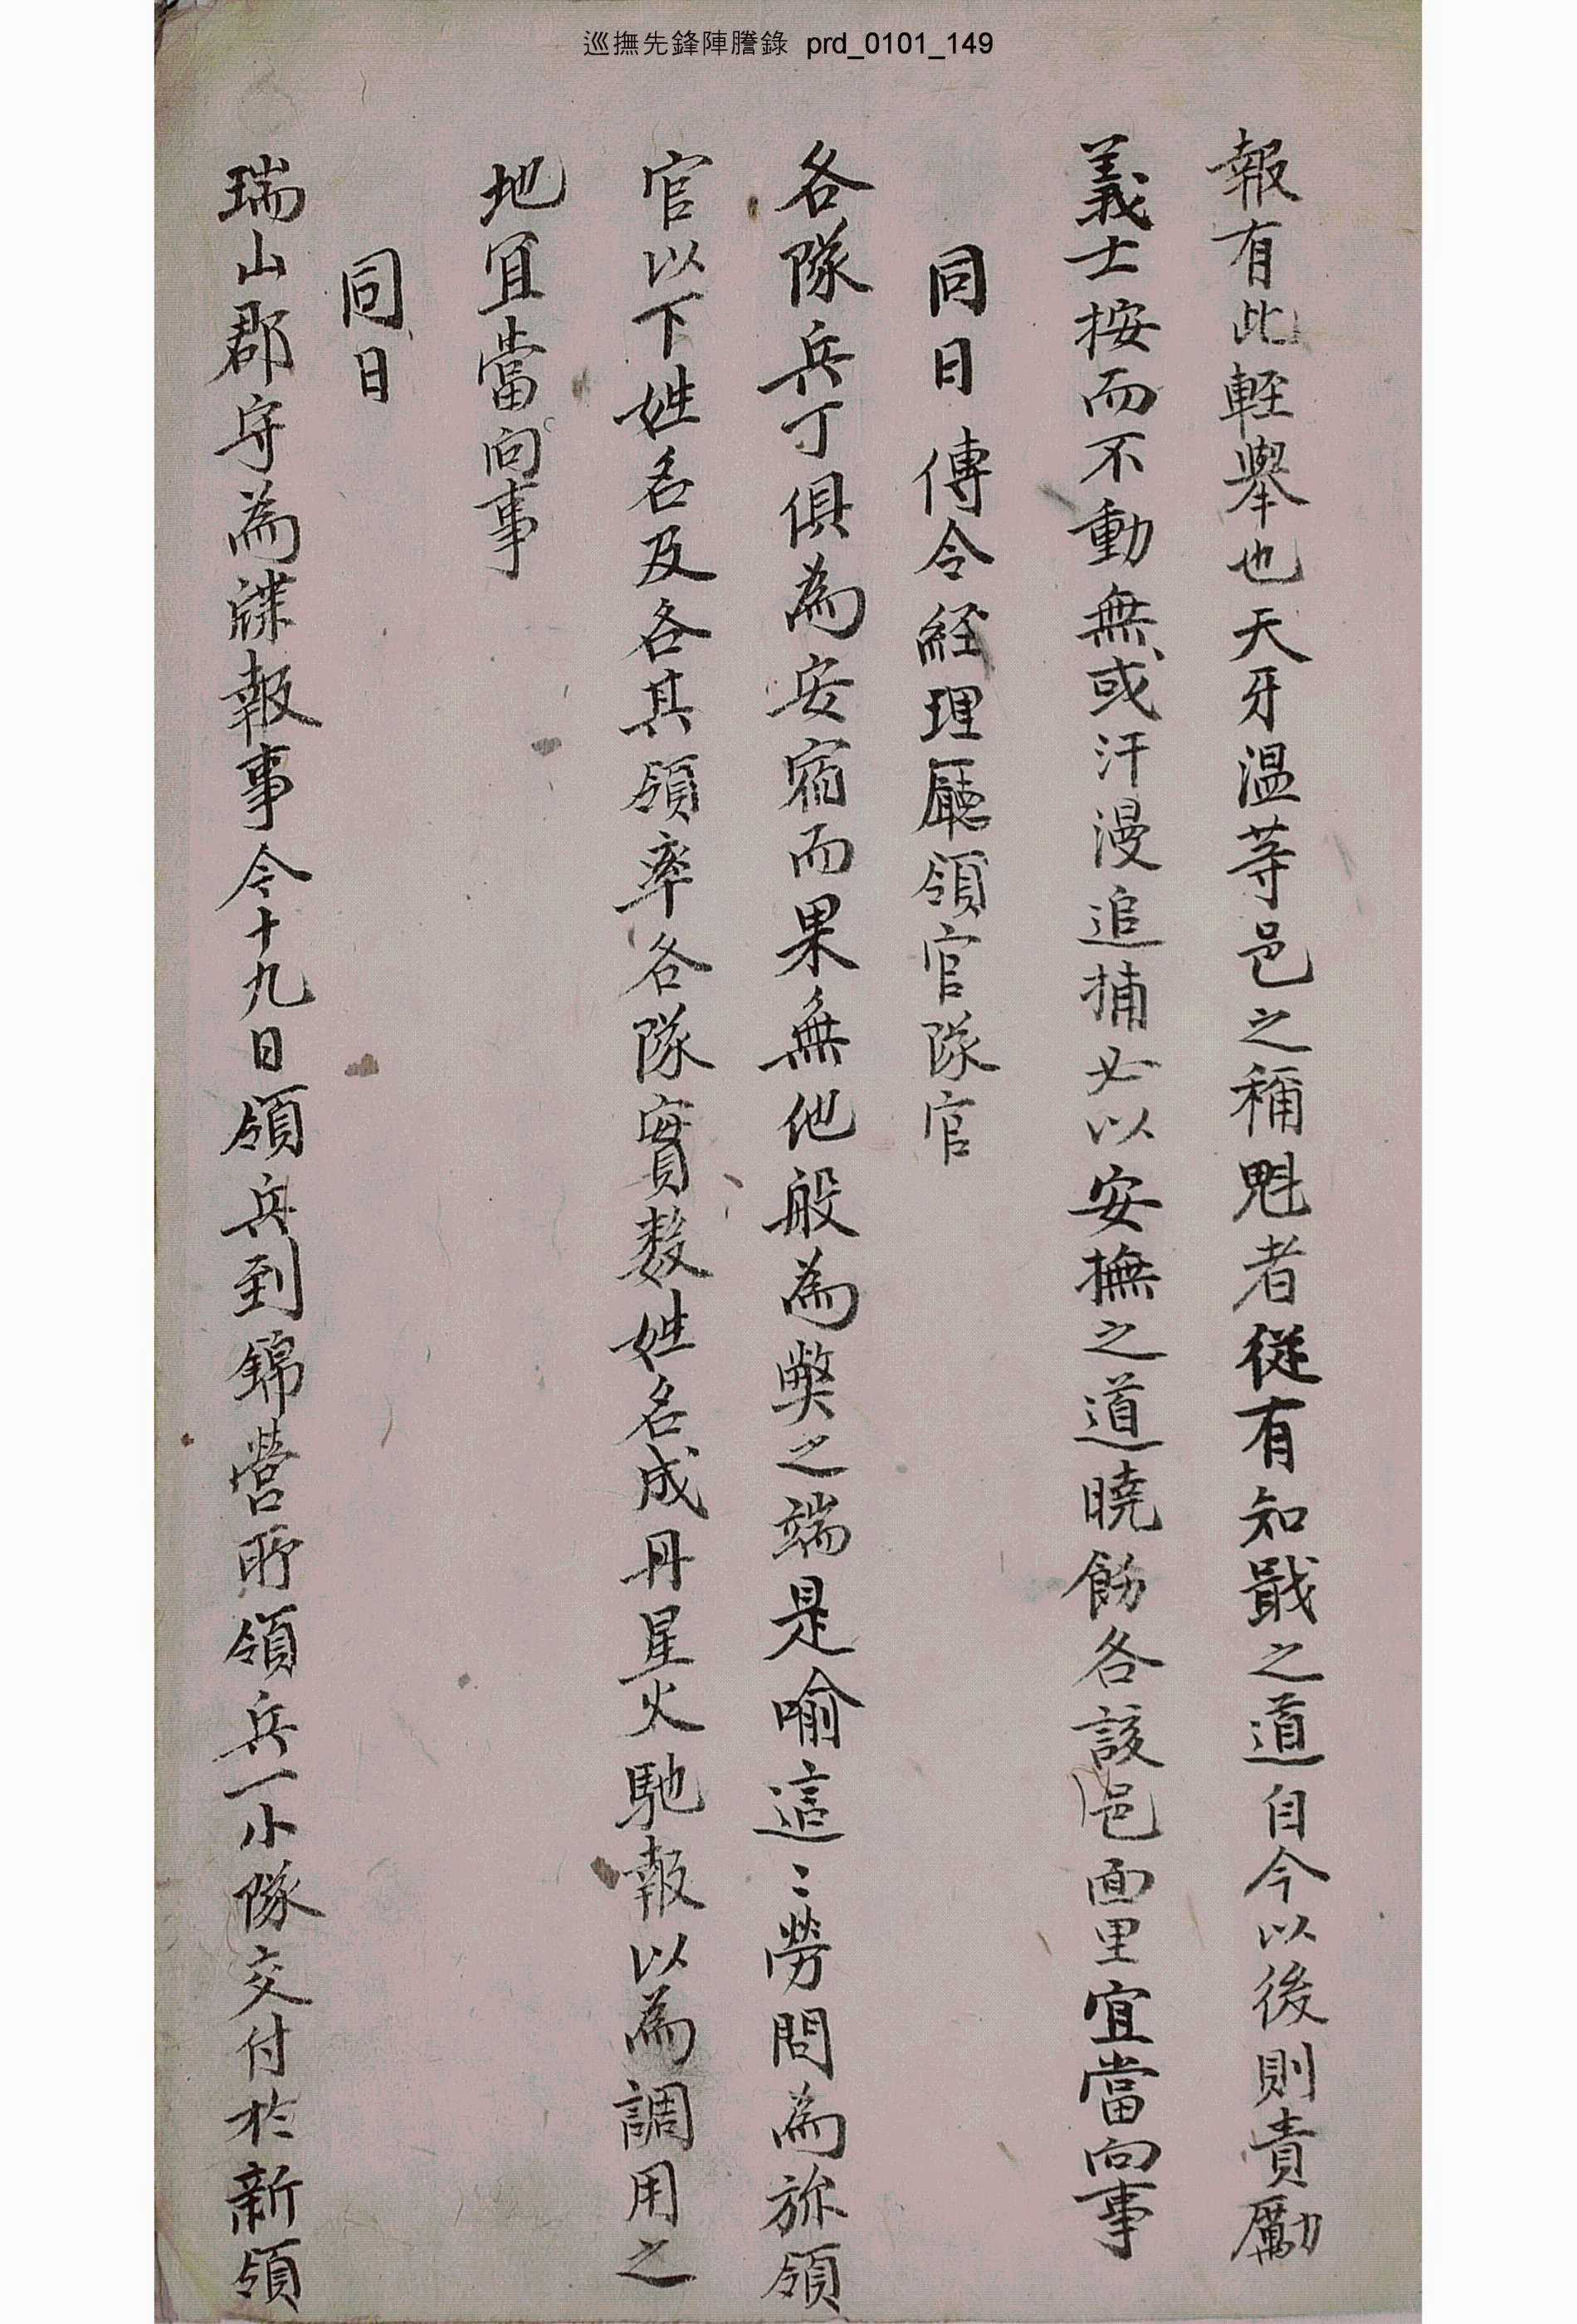 巡撫先鋒陣謄錄 prd_0101_149
報有此輕擧也天牙溫等邑之稱魁者從有知戢之道自今以後則責勵
義士按而不動無或汗漫追捕必以安撫之道曉飭各該邑面里宜當向事
同日 傳令經理廳領官隊官
各隊兵丁俱為安宿而果無他般為弊之端是喻這〻勞問為旀領
官以下姓名及各其領率各隊實數姓名成冊星火馳報以為調用之
地宜當向事
同日
瑞山郡守為牒報事今十九日領兵到錦營所領兵一小隊交付於新領